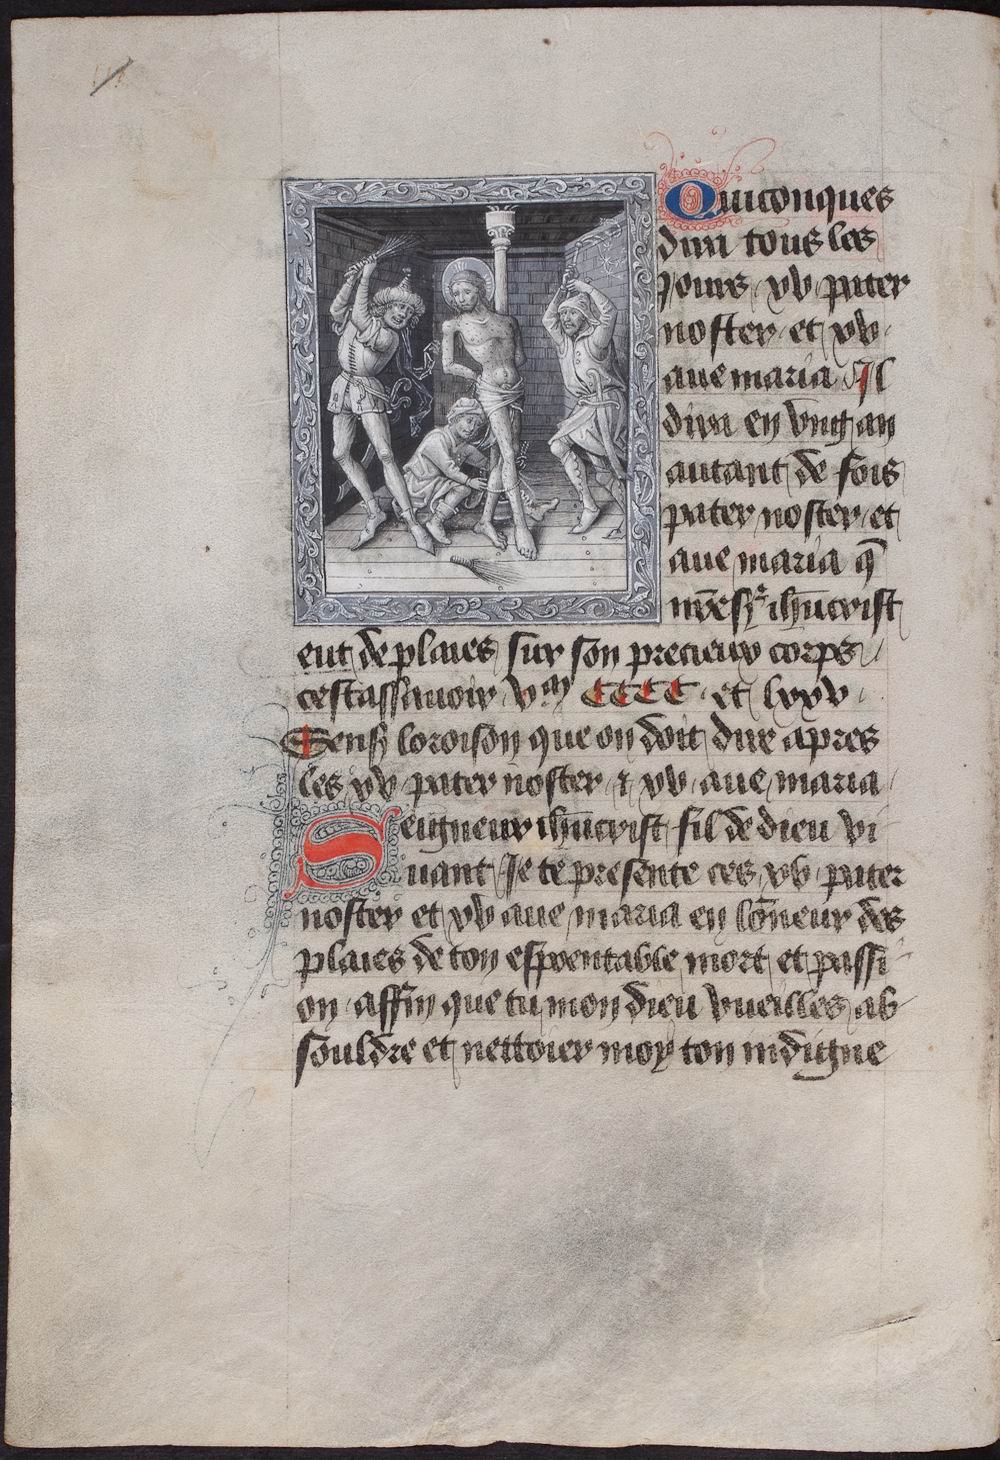 Quiconques
dira tous les
jours xv pater
noster et xv
aue maria Il
dira en vng an
autant de fois
pater noster et
aue maria q̄
nr̄e sr̄ ih̄ucrist
eut de plaies sur son precieux corps
cestassauoir vm CCCC et lxxv
Sensˀ loroison que on doit dire apres
les xv pater noster ⁊ xv aue maria
Seigneur ih̄ucrist fil de dieu vi
uant Je te presente ces xv pater
noster et xv aue maria en lōneur des
plaies de ton espoentable mort et passi
on affin que tu mon dieu vueilles ab
souldre et nettoier moy ton indigne